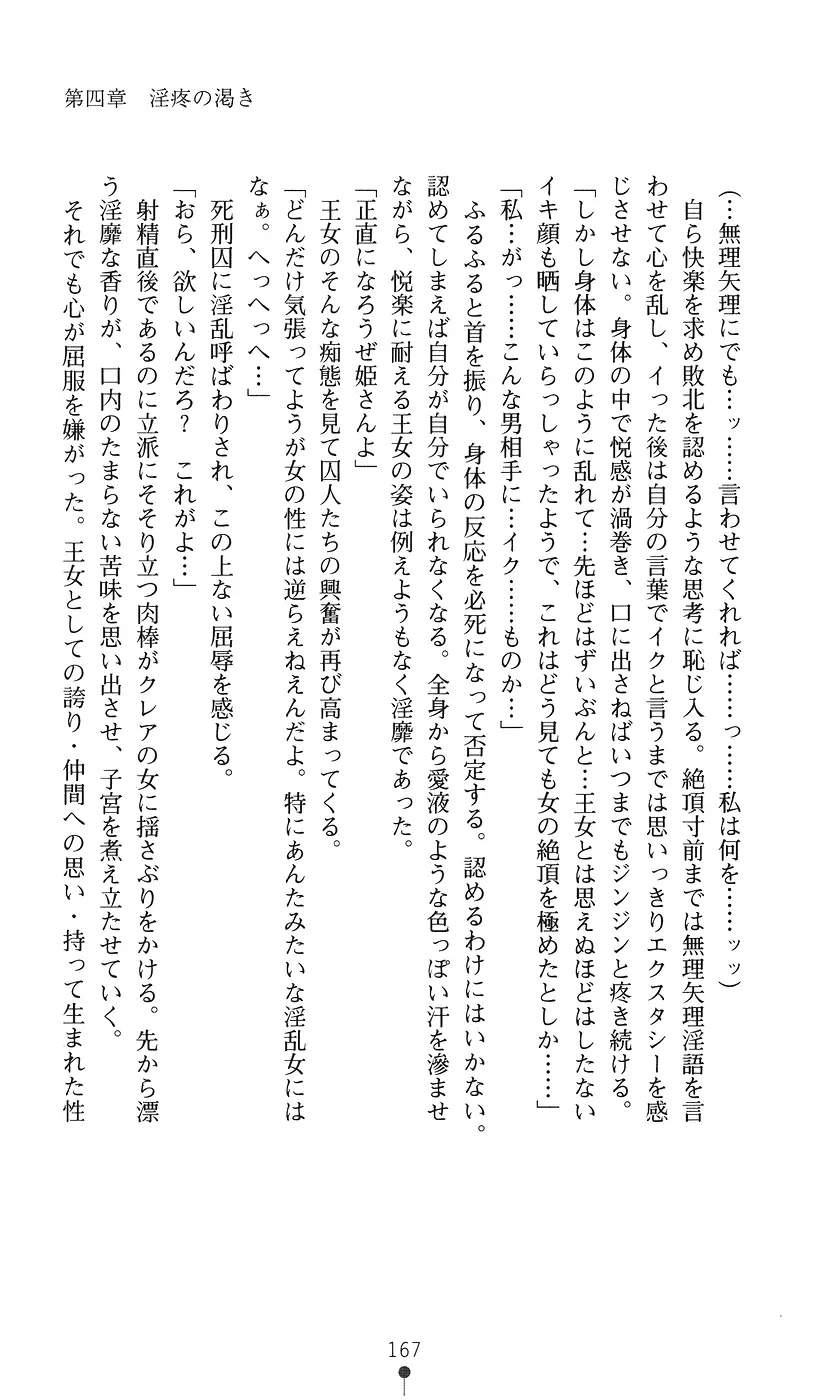 第四章　淫疼の渇き
(…無理矢理にでも…ッ……言わせてくれれば……っ……私は何を……ッッ)
　自ら快楽を求め敗北を認めるような思考に恥じ入る。絶頂寸前までは無理矢理淫語を言
わせて心を乱し、イった後は自分の言葉でイクと言うまでは思いっきりエクスタシーを感
じさせない。身体の中で悦感が渦巻き、口に出さねばいつまでもジンジンと疼き続ける。
「しかし身体はこのように乱れて…先ほどはずいぶんと…王女とは思えぬほどはしたない
イキ顔も晒していらっしゃったようで、これはどう見ても女の絶頂を極めたとしか……」
「私…がっ……こんな男相手に…イク……ものか…」
　ふるふると首を振り、身体の反応を必死になって否定する。認めるわけにはいかない。
認めてしまえば自分が自分でいられなくなる。全身から愛液のような色っぽい汗を滲ませ
ながら、悦楽に耐える王女の姿は例えようもなく淫靡であった。
「正直になろうぜ姫さんよ」
　王女のそんな痴態を見て囚人たちの興奮が再び高まってくる。
「どんだけ気張ってようが女の性には逆らえねえんだよ。特にあんたみたいな淫乱女には
なぁ。へっへっへ…」
　死刑囚に淫乱呼ばわりされ、この上ない屈辱を感じる。
「おら、欲しいんだろ？　これがよ…」
　射精直後であるのに立派にそそり立つ肉棒がクレアの女に揺さぶりをかける。先から漂
う淫靡な香りが、口内のたまらない苦味を思い出させ、子宮を煮え立たせていく。
　それでも心が屈服を嫌がった。王女としての誇り・仲間への思い・持って生まれた性
167